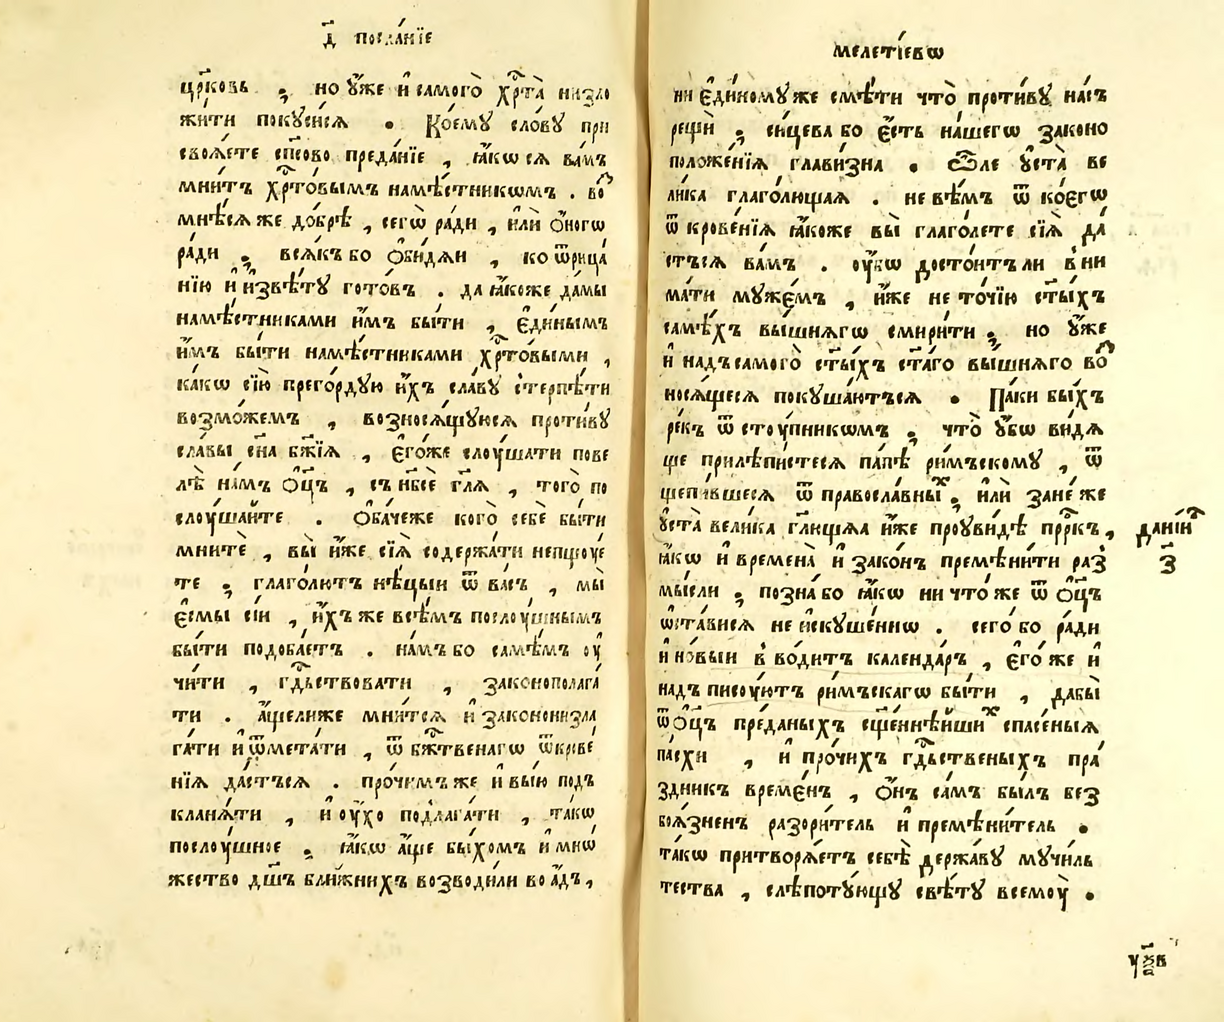 д҃ посла́нїе
цр҃ковь ; но у҆́же и҆ самого̀ хрⷭ҇та̀ низло
жити покуси́ся . Коему сло́ву при
своѧ́ете сп҃сово преда́нїе , ꙗ҆́кѡ сѧ ва́мъ
мни́тъ хрⷭ҇то́вымъ намѣ́стникѡмъ . во
мнѣ́сѧ же до́брѣ , сегѡ̀ ра́ди , и҆лѝ о҆́ногѡ
ра́ди ; всѧ́къ бо ѻ҆би́дѧи , ко ѿрица́
нїю и҆ и҆звѣ́ту гото́въ . да ꙗ҆́коже да́мы
намѣ́стниками и҆̀мъ бы́ти , є҆ди́нымъ
и҆̀мъ бы́ти намѣ́стниками хрⷭ҇то́выми ,
ка́кѡ сїю̀ прего́рдую и҆́хъ сла́ву стерпѣ́ти
возмо́жемъ , возносѧ́щуюсѧ проти́ву
сла́вы сн҃а бж҃їѧ , є҆го́же слоу́шати пове
лѣ̀ на́мъ ѻ҆ц҃ъ , съ нб҃сѐ гл҃ѧ , того̀ по
слоу́шайте . Ѻ҆ба́чеже кого̀ себѐ бы́ти
мнитѐ , вы̀ и҆̀же сїѧ̀ содержа́ти непщоуе
те ; глаго́лютъ нѣ́цыи ѿ ва́съ , мы̀
є҆смы̀ сі́и , и҆́хъ же всѣ́мъ послоу́шнымъ
бы́ти подоба́етъ . на́мъ бо самѣ́мъ оу҆
чи́ти , гдⷭ҇ьствовати , законополага́
ти . а҆́щелиже мни́тсѧ и҆ законониз̾ла
га́ти и҆ ѿмета́ти , ѿ бж҃твенагѡ ѿкрове́
нїѧ да́стъсѧ . про́чимъ же и҆ вы́ю подъ
кланѧ́ти , и҆ оу҆́хо подлага́ти , та́кѡ
послоу́шное ; ꙗ҆́кѡ а҆́ще бы́хомъ и҆ мнѡ́
жество дш҃ъ бли́жнихъ возводи́ли во а҆́дъ ,
мелеті́евѡ
ни є҆ди́номуже смѣ́ти что̀ проти́ву на́съ
рещѝ ; си́цева бо є҆́сть на́шегѡ законо
положе́нїѧ глави́зна . Ѽле у҆ста̀ ве
ли́ка глаго́лющаѧ . не вѣ́мъ ѿ ко́егѡ
ѿ крове́нїѧ ꙗ҆́коже вы̀ глаго́лете сїѧ̀ да́
стъсѧ ва́мъ . оу҆́бѡ досто́итъ ли в̾ ни
ма́ти муже́мъ , и҆̀же не то́чїю ст҃ы́хъ
самѣ́хъ вы́шнѧгѡ смири́ти ; но у҆́же
и҆ надъ самого̀ ст҃ы́хъ ст҃а́го вы́шнѧго во
носѧ́щесѧ покуша́ютъсѧ . Па́ки бы́хъ
ре́къ ѿ стоу́пникѡмъ ; что̀ у҆́бѡ ви́дѧ
ще прилѣпи́стесѧ па́пѣ ри́мъскому , ѿ
щепи́вшесѧ ѿ правосла́вныⷯ ; и҆лѝ зане́ же
у҆ста̀ вели́ка гл҃ющѧа и҆̀же проуви́дѣ прⷪ҇ркъ ,
ꙗ҆́кѡ и҆ времена̀ и҆ зако́нъ премѣни́ти раз̾
мы́сли ; позна̀ бо ꙗ҆́кѡ ни что́ же ѿ ѻ҆ц҃ъ
ѡ҆ста́висѧ не и҆скуше́ннѡ . сего̀ бо ра́ди
и҆ но́выи в̾ во́дитъ календа́ръ , є҆го́ же и҆
надъ писоу́ютъ ри́мъскагѡ бы́ти , дабы̀
ѿ ѻ҆ц҃ъ пре́даныхъ сщ҃еннѣ́йшиⷯ спасе́ныѧ
па́схи , и҆ про́чихъ гдⷭ҇ьственыхъ пра́
здникъ време́нъ , ѻ҆́нъ са́мъ бы́лъ без̾
боѧ́зненъ разори́тель и҆ премѣни́тель .
та́кѡ притворѧ́етъ себѣ̀ держа́ву мучи́ль
тества , слѣпоту́ющу свѣ́ту всемоу̀ .
данїи́л
з҃